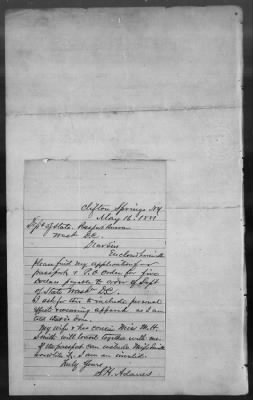 Clifton Springs NY
May 16, 1881
Dept of State, Passport Bureau
Wash D.C.
Dear Sir
Enclosed
please find my application for
passport & P.O. Order for five
Dollars payable to order of Dept
of State Wash D.C.
I ask for this to include personal
effects
told that is done.
My wife & her cousin Miss M. H.
Smith will travel together with me.
If the passport can include Miss Smith
I am an invalid.
Truly Yours
Adams